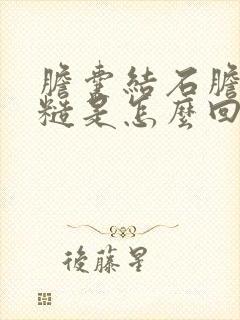 膽囊結石膽
糙是怎麼回
後藤星